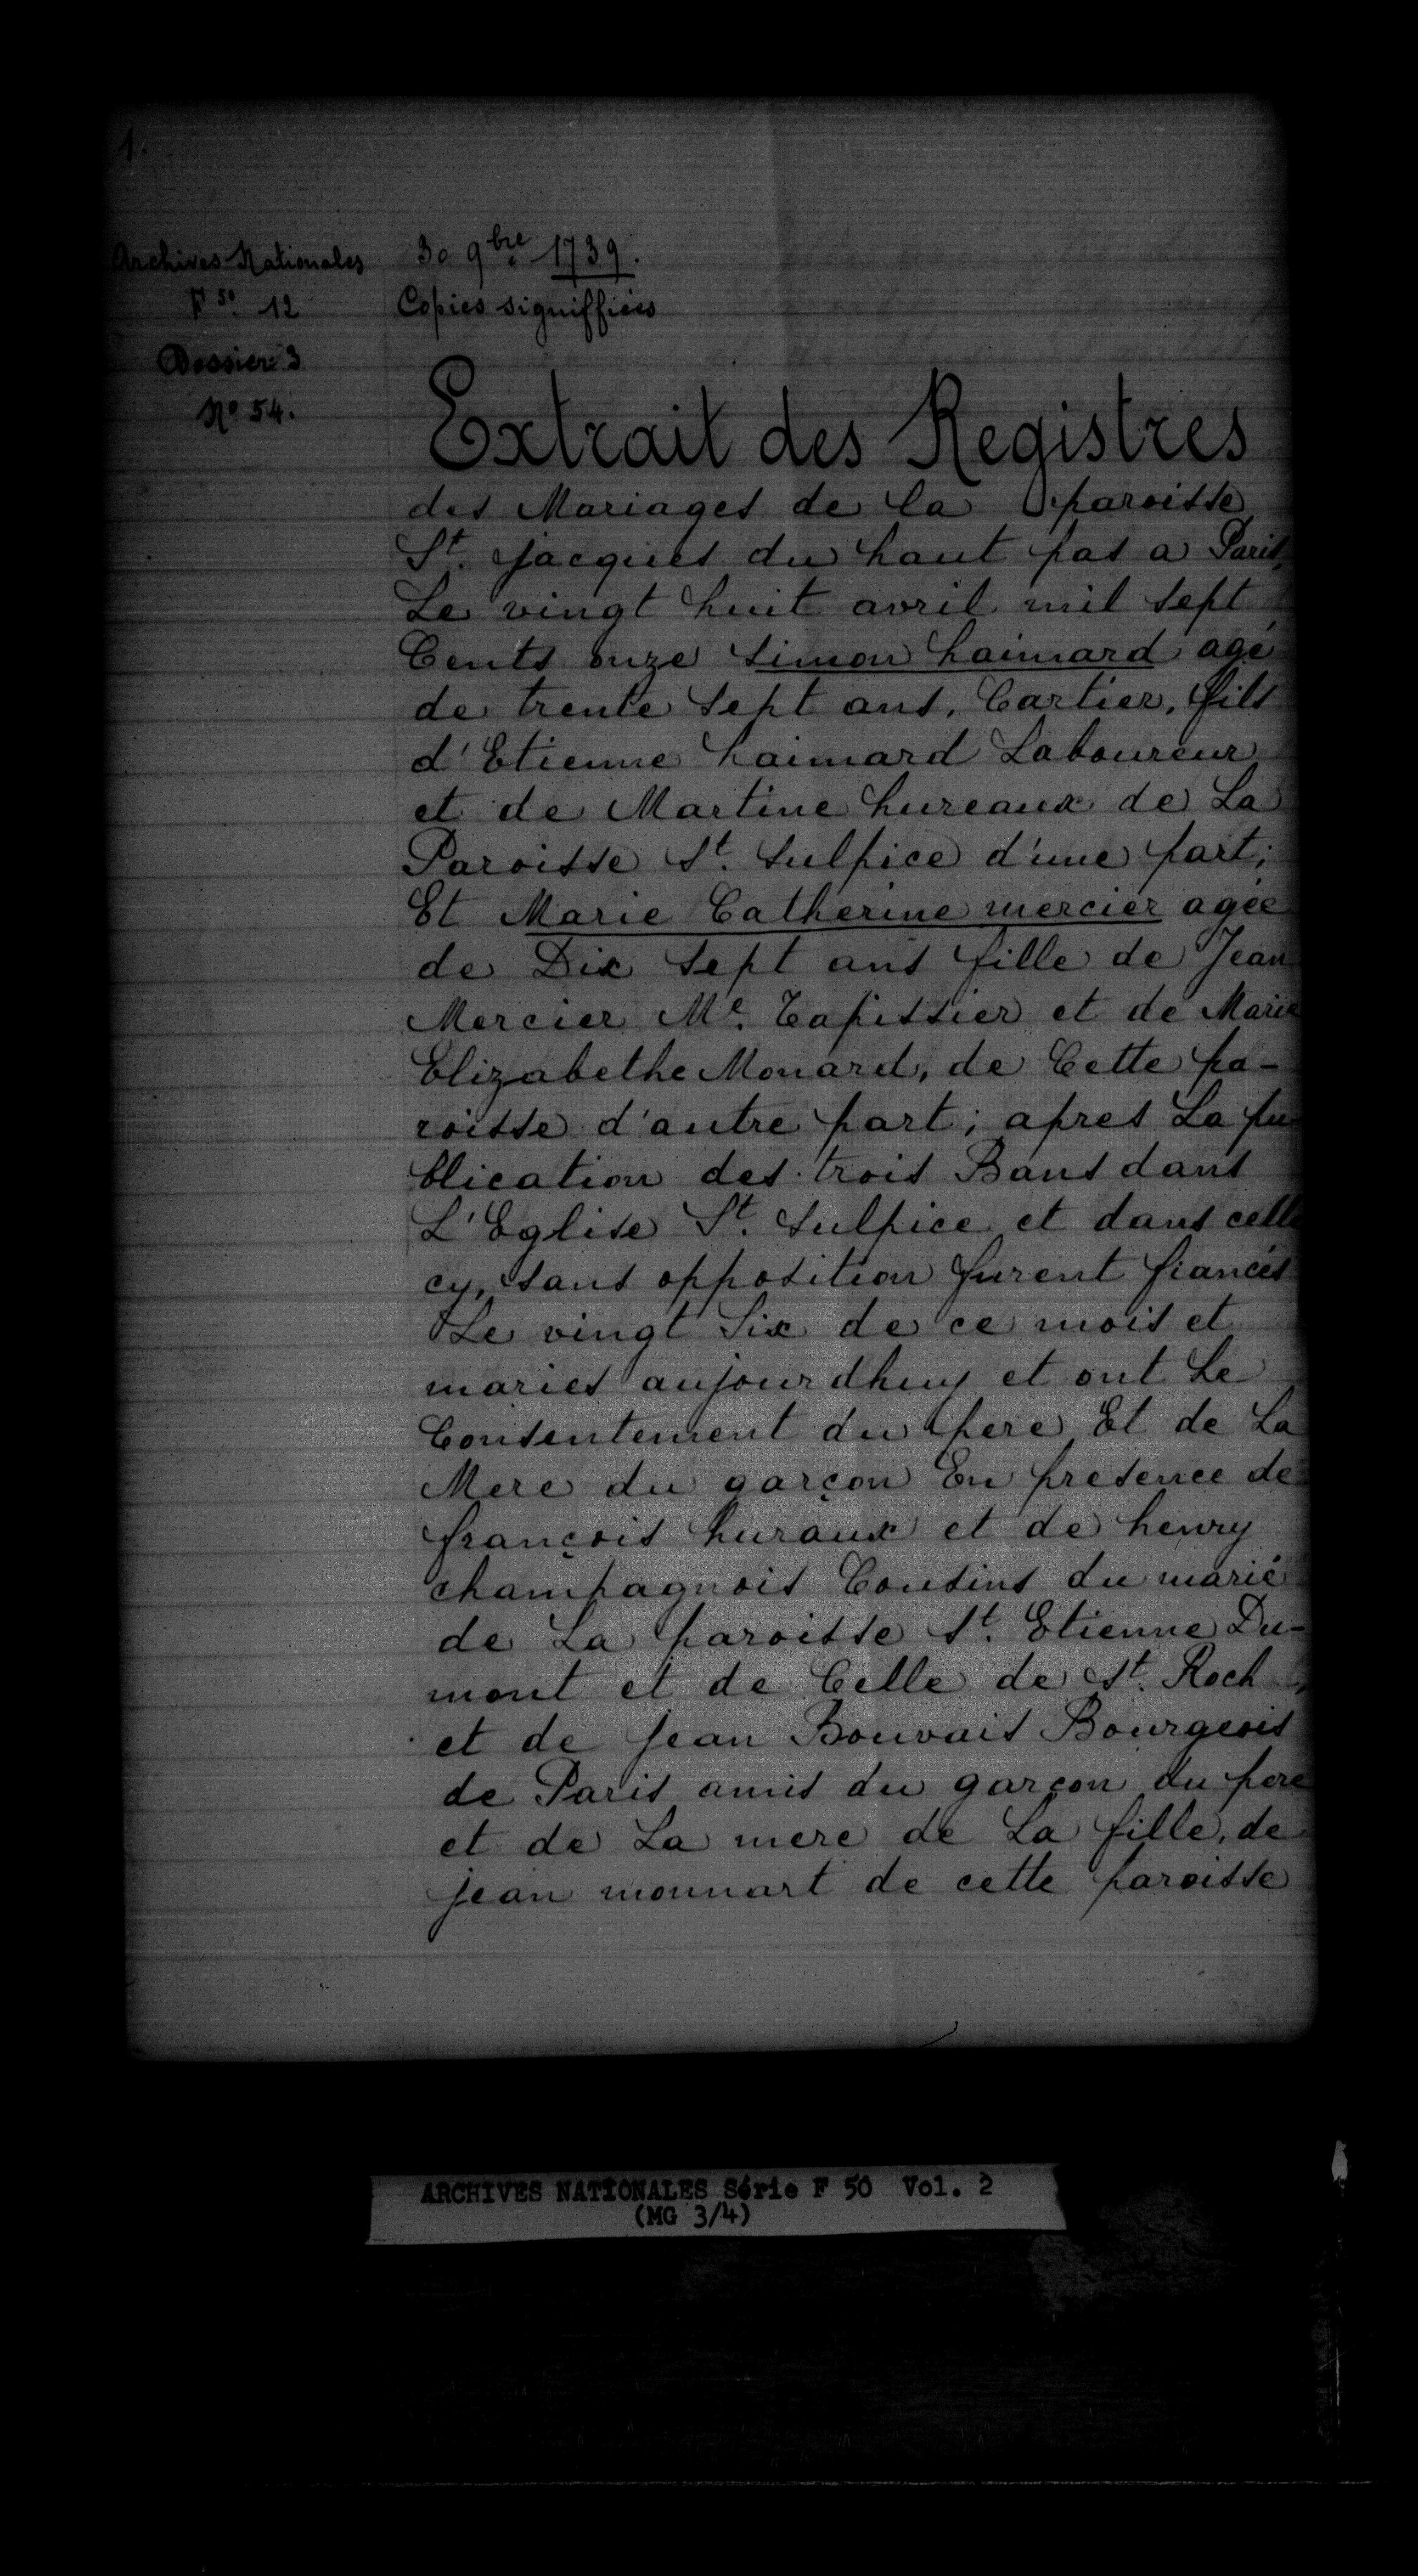 1.
Archives Nationales
F 50. 12
Dossier 3
No 54.
30 9bre 1739.
Copies signiffiées
Extrait des Registres
des Mariages de la paroisse
St. Jacques du haut pas a Paris,
Le vingt huit avril mil sept
Cents onze Simon haimard agé
de trente sept ans, Cartier, fils
d'Etienne haimard Laboureur
et de Martine hureaux de La
Paroisse St. Sulpice d'une part;
Et Marie Catherine mercier agée
de Dix sept ans fille de Jean
Mercier Me. Tapissier et de Marie
Elizabethe Monard, de Cette pa-
roisse d'autre part; apres La pu-
blication des trois Bans dans
L'Eglise St. Sulpice et dans celle
cy, sans opposition furent fiancés
Le vingt Six de ce mois et
mariés aujourdhuy et ont Le
Consentement du pere Et de La
Mere du garçon En presence de
françois huraux et de henry
champagnois Cousins du marié
de La paroisse St. Etienne Du-
mont et de Celle de St. Roch,
et de Jean Bouvais Bourgeois
de Paris amis du garçon du pere
et de La mere de La fille, de
jean monnart de cette paroisse
ARCHIVES NATIONALES Série F 50 Vol. 2
(MG 3/4)